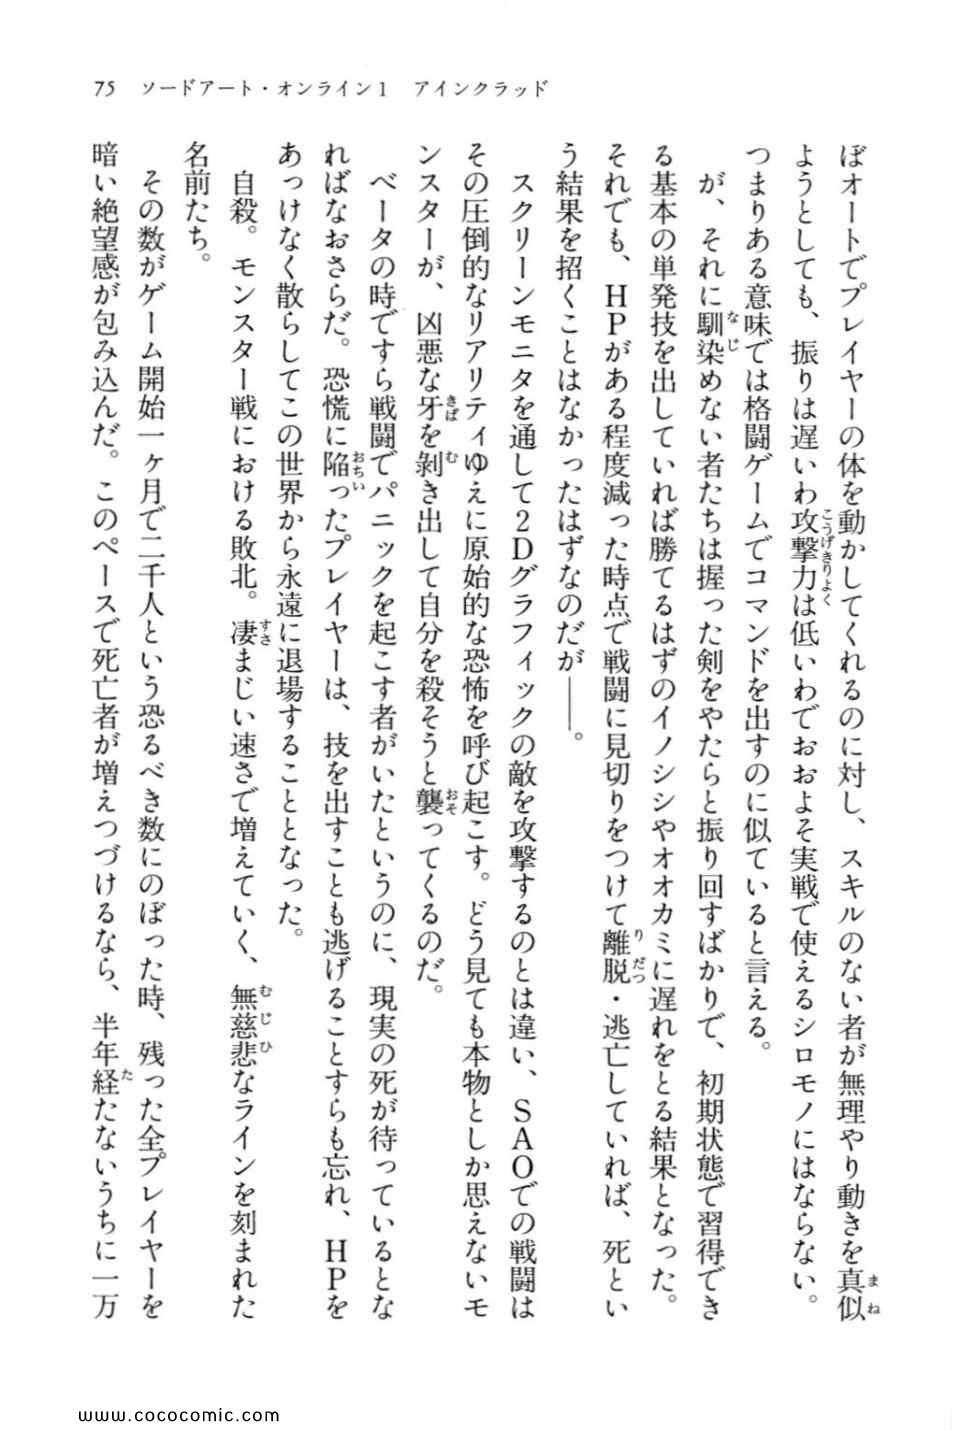 75　ソードアート・オンライン1　アインクラッド
ぼオートでプレイヤーの体を動かしてくれるのに対し、スキルのない者が無理やり動きを真似
ようとしても、振りは遅いわ攻撃力は低いわでおおよそ実戦で使えるシロモノにはならない。
つまりある意味では格闘ゲームでコマンドを出すのに似ていると言える。
　が、それに馴染めない者たちは握った剣をやたらと振り回すばかりで、初期状態で習得でき
る基本の単発技を出していれば勝てるはずのイノシシやオオカミに遅れをとる結果となった。
それでも、HPがある程度減った時点で戦闘に見切りをつけて離脱・逃亡していれば、死とい
う結果を招くことはなかったはずなのだが――。
　スクリーンモニタを通して2Dグラフィックの敵を攻撃するのとは違い、SAOでの戦闘は
その圧倒的なリアリティゆえに原始的な恐怖を呼び起こす。どう見ても本物としか思えないモ
ンスターが、凶悪な牙を剝き出して自分を殺そうと襲ってくるのだ。
　ベータの時ですら戦闘でパニックを起こす者がいたというのに、現実の死が待っているとな
ればなおさらだ。恐慌に陥ったプレイヤーは、技を出すことも逃げることすらも忘れ、HPを
あっけなく散らしてこの世界から永遠に退場することとなった。
　自殺。モンスター戦における敗北。凄まじい速さで増えていく、無慈悲なラインを刻まれた
名前たち。
　その数がゲーム開始一ヶ月で二千人という恐るべき数にのぼった時、残った全プレイヤーを
暗い絶望感が包み込んだ。このペースで死亡者が増えつづけるなら、半年経たないうちに一万
www.cococomic.com